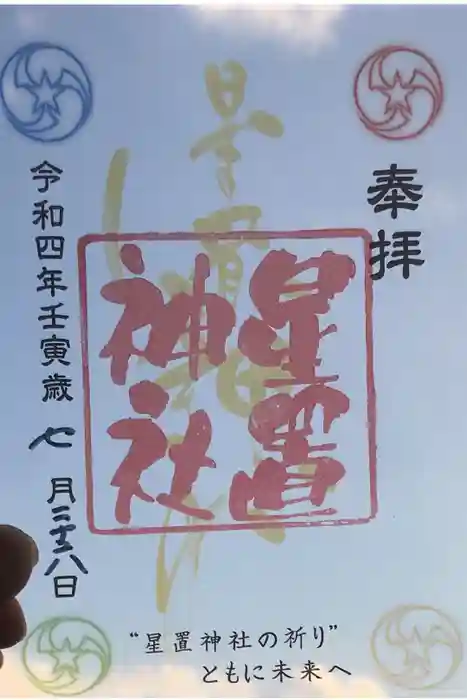 奉拝
星置
神社
令和四年壬寅歳七月二十八日
"星置神社の祈り"
ともに未来へ